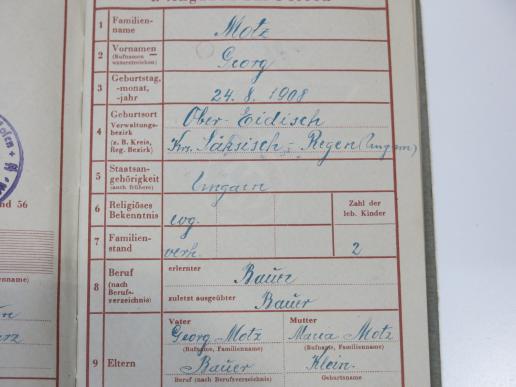 1 Familien-name Motz
2 Vornamen (Rufnamen unterstreichen) Georg
3 Geburtstag, -monat, -jahr 24. 8. 1908
4 Geburtsort Ober-Eidisch
Verwaltungsbezirk (z. B. Kreis, Reg. Bezirk) Krs. Sähsisch-Regen (Ungarn)
5 Staatsan-gehörigkeit (auch frühere) Ungarn
6 Religiöses Bekenntnis evg.
Zahl der leb. Kinder
7 Familien-stand verh. 2
8 Beruf (nach Berufsverzeichnis)
erlernter Bauer
zuletzt ausgeübter Bauer
9 Eltern
Vater Mutter
Georg Motz Maria Motz
(Rufname, Familienname) (Rufname, Familienname)
Bauer Klein
Beruf (nach Berufsverzeichnis) Geburtsname
nd 56